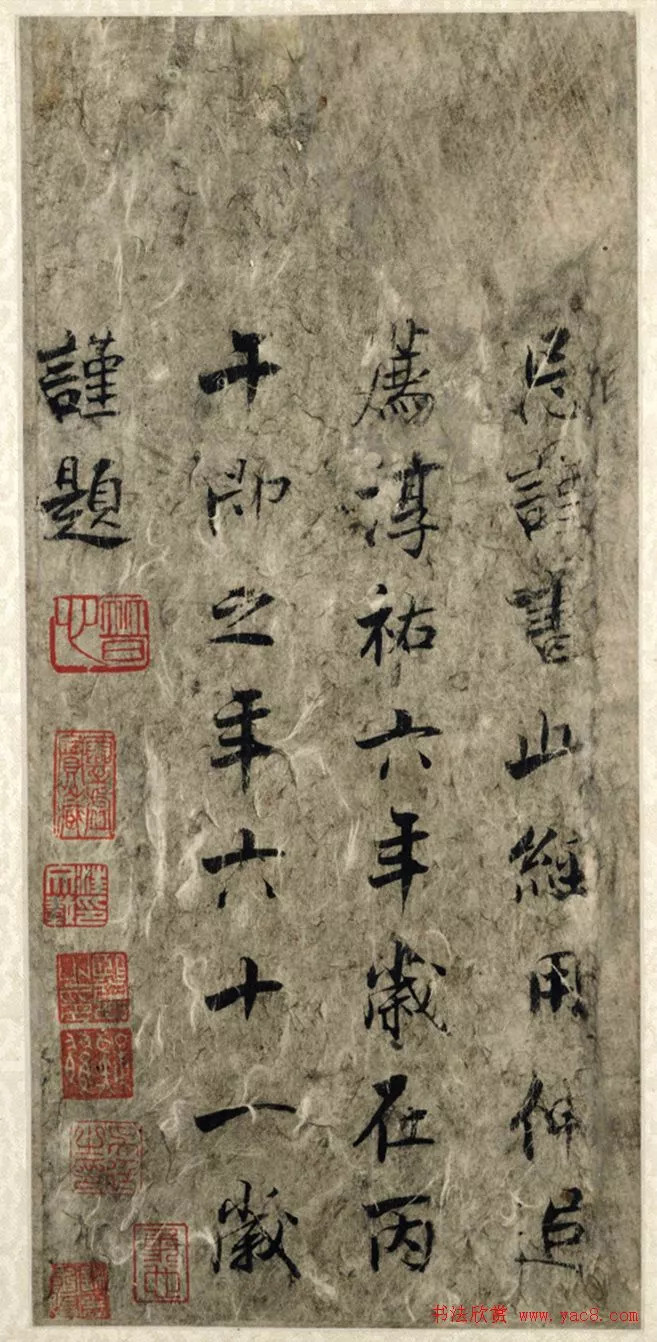 忌謹書此經用伸追
薦淳祐六年歲在丙
午即之年六十一歲
謹題
书法欣赏 www.yac8.com